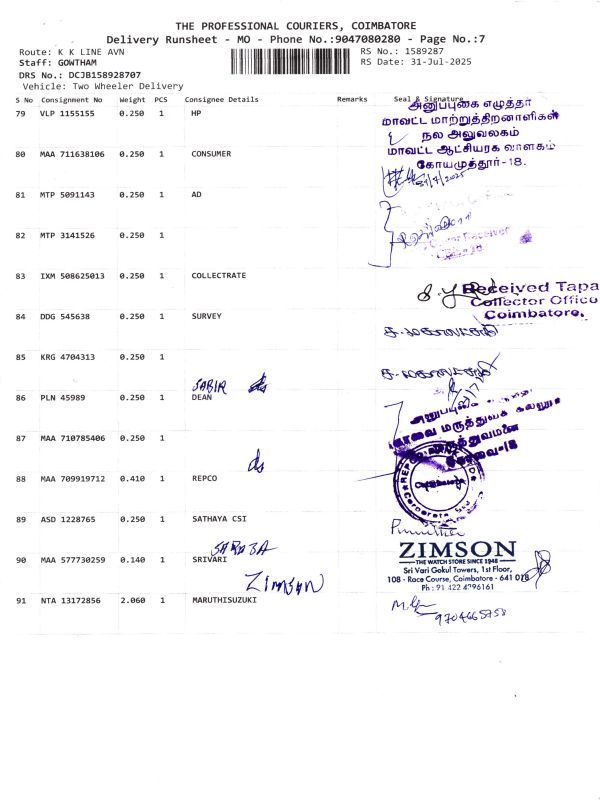 THE PROFESSIONAL COURIERS, COIMBATORE
Delivery Runsheet - MO - Phone No.:9047080280 - Page No.:7
Route: K K LINE AVN
RS No.: 1589287
Staff: GOWTHAM
RS Date: 31-Jul-2025
DRS No.: DCJB158928707
Vehicle: Two Wheeler Delivery
S No Consignment No Weight PCS Consignee Details Remarks Seal & Signature
79 VLP 1155155 0.250 1 HP
அனுப்புகை எழுத்தர்
மாவட்ட மாற்றுத்திறனாளிகள்
நல அலுவலகம்
மாவட்ட ஆட்சியரக வளாகம்
கோயமுத்தூர்-18.
80 MAA 711638106 0.250 1 CONSUMER
81 MTP 5091143 0.250 1 AD
82 MTP 3141526 0.250 1
83 IXM 508625013 0.250 1 COLLECTRATE
Received Tapa
Collector Office
Coimbatore.
84 DDG 545638 0.250 1 SURVEY
85 KRG 4704313 0.250 1
SABIR
86 PLN 45989 0.250 1 DEAN
87 MAA 710785406 0.250 1
88 MAA 709919712 0.410 1 REPCO
89 ASD 1228765 0.250 1 SATHAYA CSI
90 MAA 577730259 0.140 1 SRIVARI
ZIMSON
THE WATCH STORE SINCE 1948
Sri Vari Gokul Towers, 1st Floor,
108 - Race Course, Coimbatore - 641 018
Ph : 91 422 4296161
Zimson
91 NTA 13172856 2.060 1 MARUTHISUZUKI
9704665758